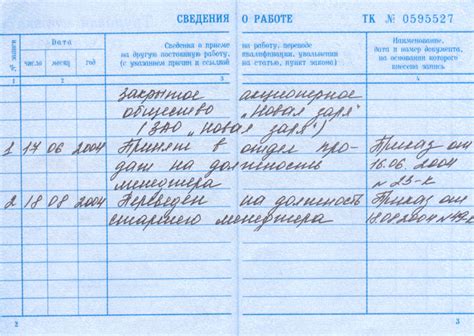 СВЕДЕНИЯ О РАБОТЕ ТК № 0595527
№ записи
Дата
число месяц год
Сведения о приеме на работу, переводе
на другую постоянную работу, квалификации, увольнении
(с указанием причин и ссылкой на статью, пункт закона)
Наименование,
дата и номер документа,
на основании которого
внесена запись
1 2 3 4
Закрытое акционерное
общество "Новая заря"
(ЗАО "Новая заря")
1 17 06 2004 Принят в отдел про- Приказ от
даж на должность 16.06.2004
менеджера № 23-к
2 18 08 2004 Переведен на должность Приказ от
старшего менеджера 18.08.2004
2 3